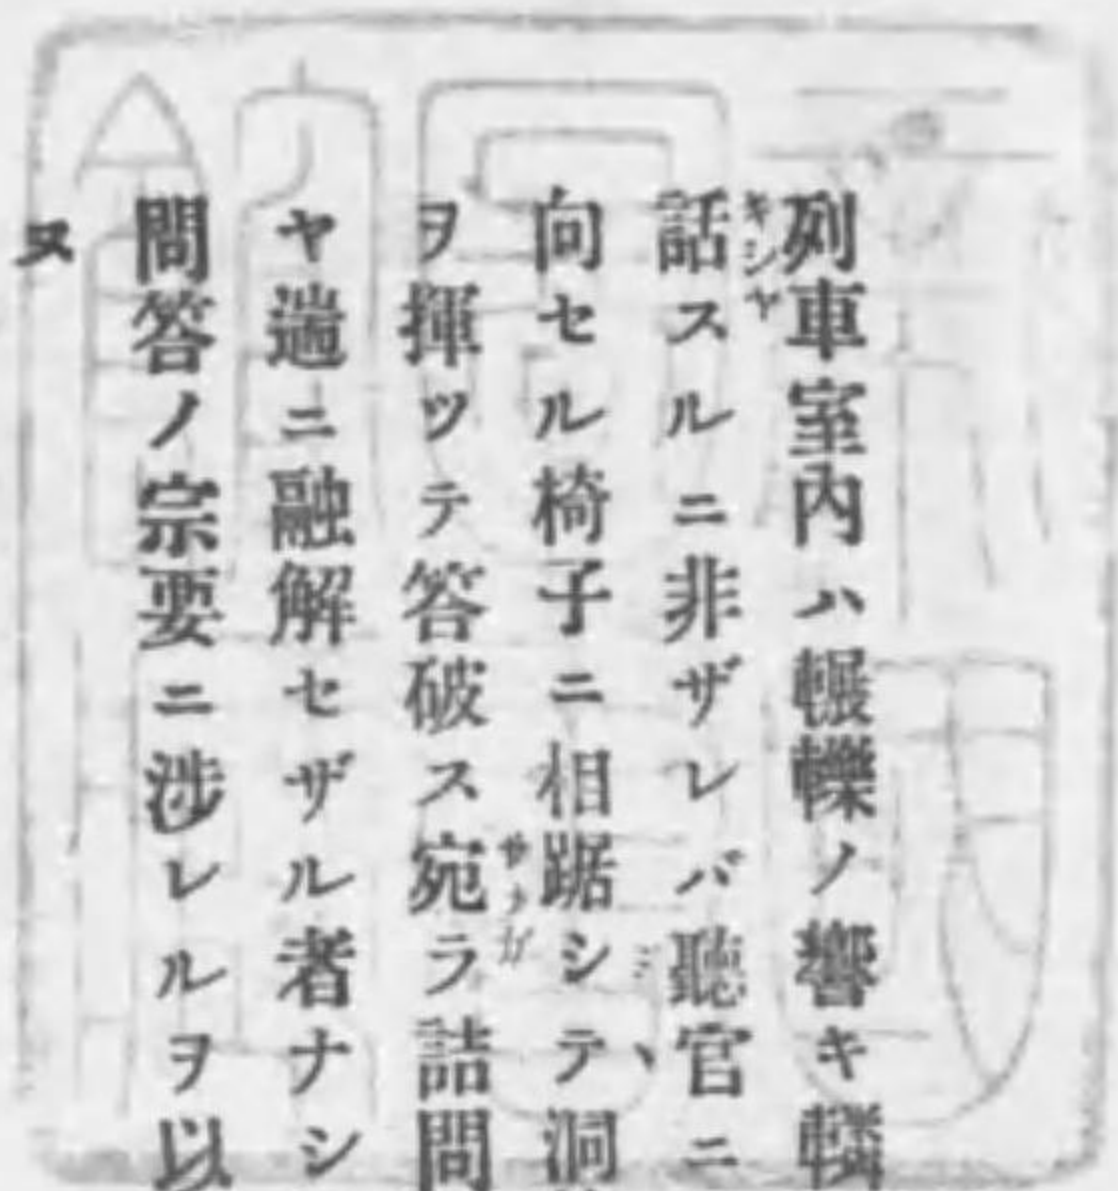 列車室内ハ輾轢ノ響キ轔
キシヤ
話スルニ非ザレバ聽官ニ
ミヽ
向セル椅子ニ相踞シテ洞
ヲ揮ツテ答破ス宛ラ詰問
サナガ
ヤ遄ニ融解セザル者ナシ
問答ノ宗要ニ涉レルヲ以
ヌ